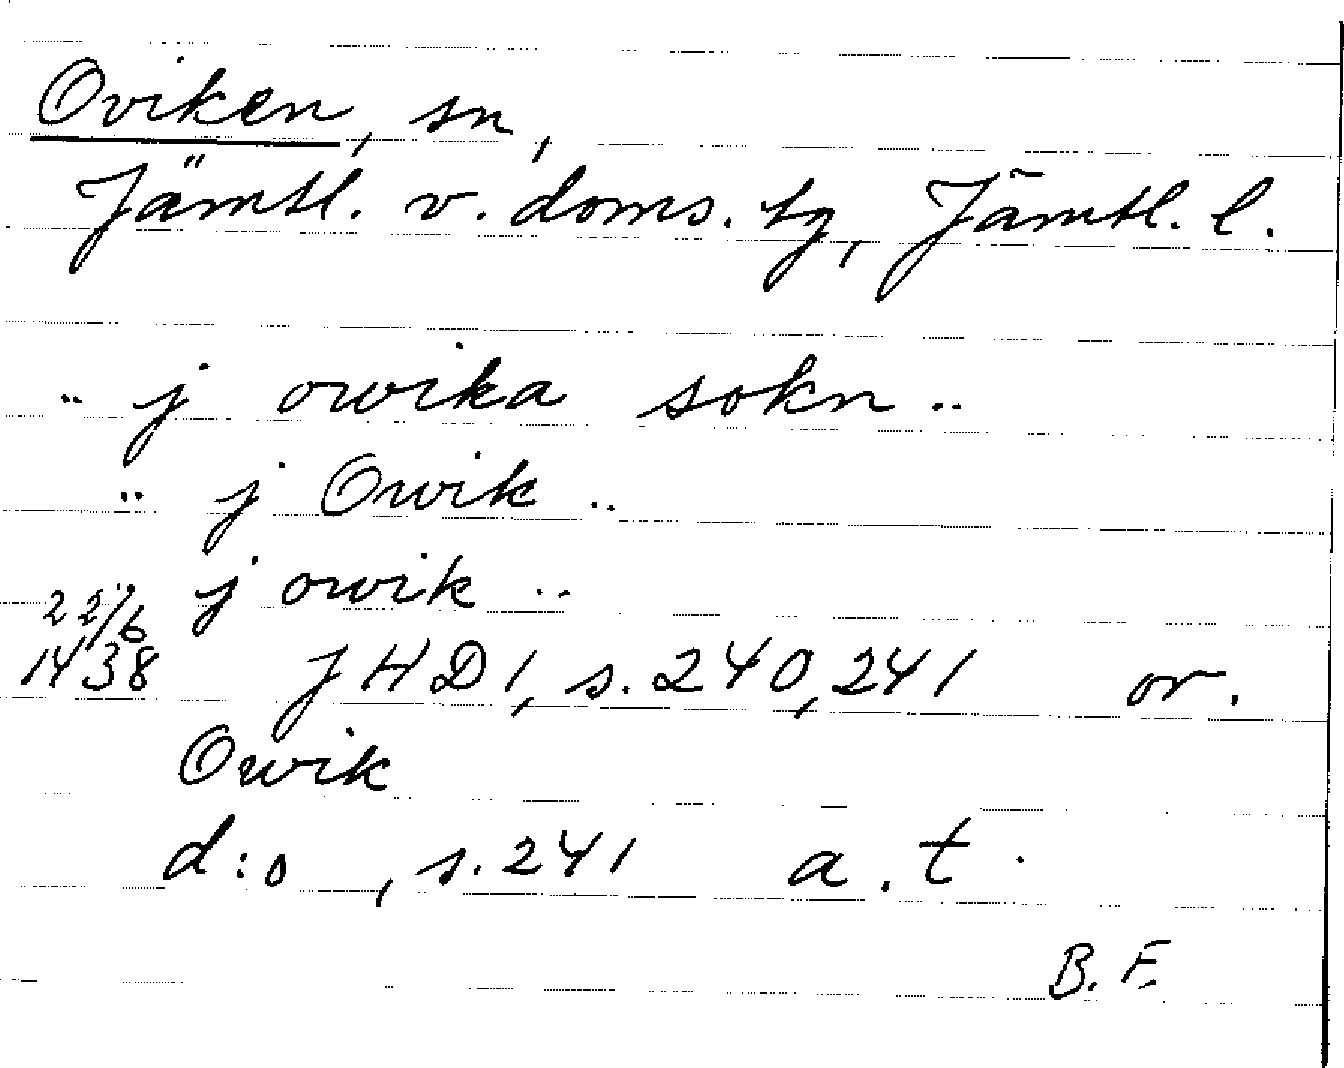 Oviken, sn,
Jämtl. v. doms. tg, Jämtl. l.
.. j owika sokn ..
.. j Owik ..
.. j owik ..
22/6
1438 JHD 1, s. 240, 241 or.
Owik
d:o , s. 241 a. t.
B. F.